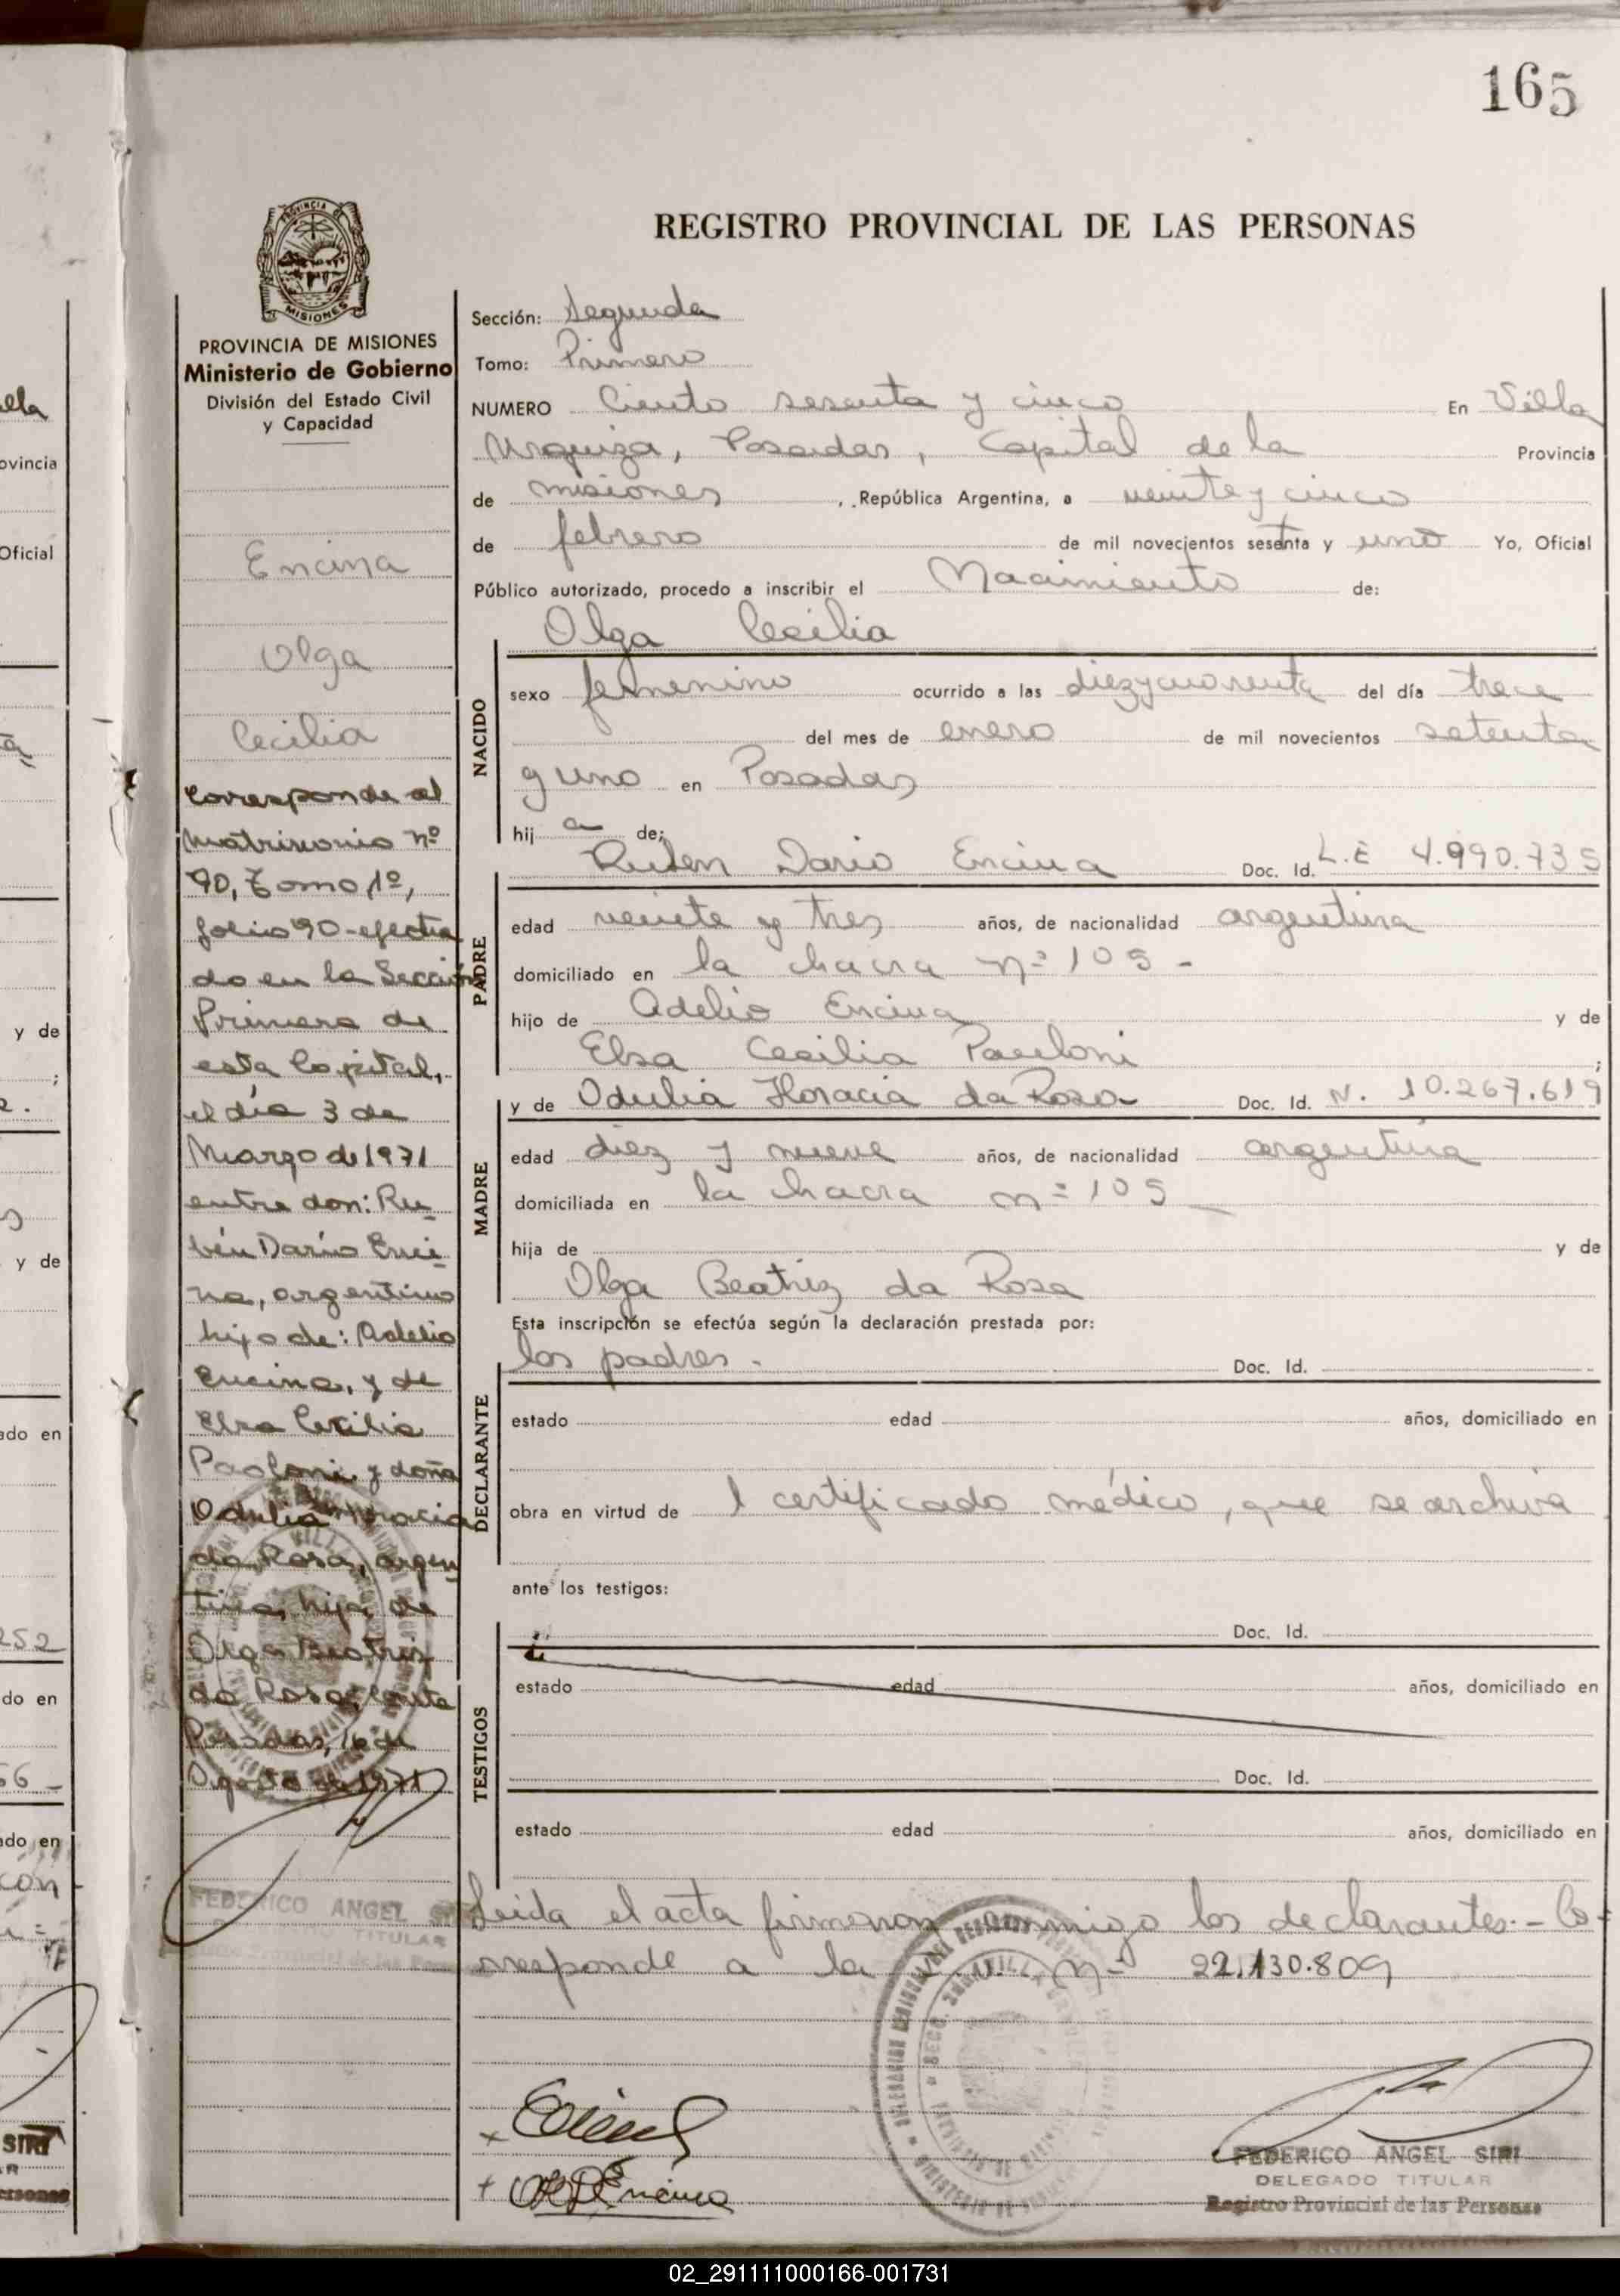 165
REGISTRO PROVINCIAL DE LAS PERSONAS
PROVINCIA DE MISIONES
Ministerio de Gobierno
División del Estado Civil
y Capacidad
Encina
Olga
Cecilia
Corresponde al
matrimonio nº
90, Tomo 1º,
folio 90-efectua
do en la Sección
Primera de
esta Capital,
el día 3 de
Marzo de 1971
entre don: Ru-
bén Darío Enci-
na, argentino
hijo de: Adelio
Encina, y de
Elsa Cecilia
Paoloni, y doña
Odulia Horacia
da Rosa, argen
tina, hija de
Olga Beatriz
da Rosa, Conste
Posadas, 16 de
Agosto de 1971
FEDERICO ANGEL
TITULAR
Sección: Segunda
Tomo: Primero
NUMERO Ciento sesenta y cinco En Villa
Urquiza, Posadas, Capital de la Provincia
de misiones, República Argentina, a veinte y cinco
de febrero de mil novecientos sesenta y uno Yo, Oficial
Público autorizado, procedo a inscribir el Nacimiento de:
Olga Cecilia
NACIDO
sexo femenino ocurrido a las diezycuarenta del día trece
del mes de enero de mil novecientos setenta
y uno en Posadas
hij a de:
Ruben Dario Encina Doc. Id. L.E 4.990.735
PADRE
edad veinte y tres años, de nacionalidad argentina
domiciliado en la chacra nº 105 -
hijo de Adelio Encina y de
Elsa Cecilia Paoloni ;
y de Odulia Horacia da Rosa Doc. Id. N. 10.267.619
MADRE
edad diez y nueve años, de nacionalidad argentina
domiciliada en la chacra nº 105
hija de y de
Olga Beatriz da Rosa
Esta inscripción se efectúa según la declaración prestada por:
los padres. Doc. Id.
DECLARANTE
estado edad años, domiciliado en
obra en virtud de l certificado médico, que se archiva
ante los testigos:
Doc. Id.
TESTIGOS
estado edad años, domiciliado en
Doc. Id.
estado edad años, domiciliado en
Leida el acta firmaron conmigo los declarantes.- Co-
rresponde a la nº 22.130.809
Encina
FEDERICO ANGEL SIRI
DELEGADO TITULAR
Registro Provincial de las Personas
02_291111000166-001731